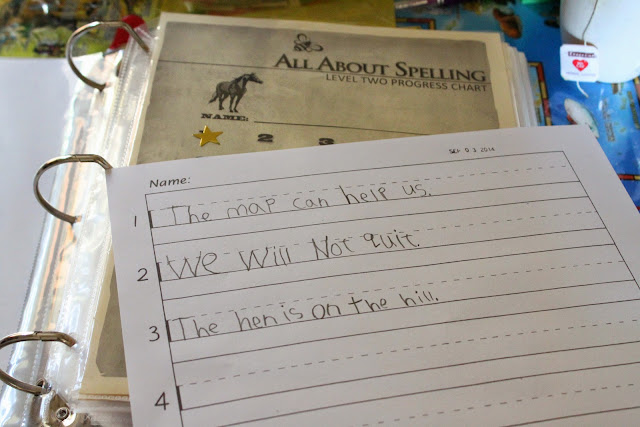 ALL ABOUT SPELLING
LEVEL TWO PROGRESS CHART
NAME:
2 3
SEP 03 2014
Name:
1 The map can help us.
2 We Will Not quit.
3 The hen is on the hill.
4